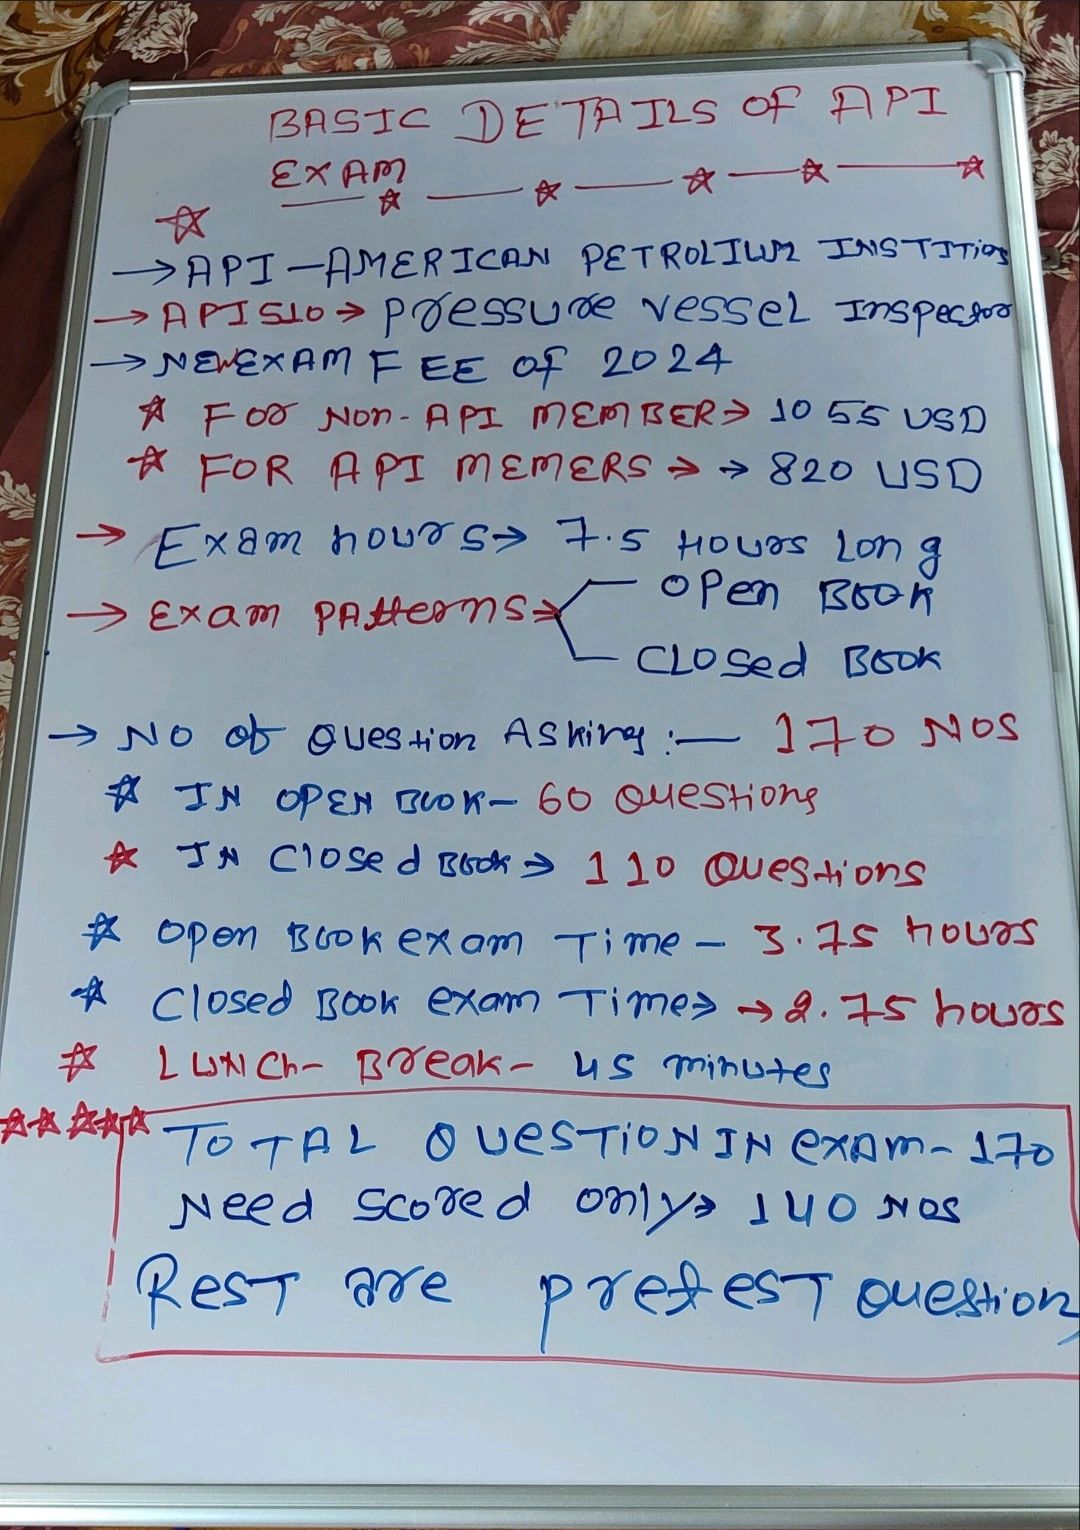 BASIC DETAILS OF API
EXAM
→ API - AMERICAN PETROLIUM INSTITion
→ API 510 → Pressure vessel Inspector
→ NEW EXAM FEE OF 2024
☆ FOr Non-API MEMBER → 1055 USD
☆ FOR API MEMERS → → 820 USD
→ Exam hours → 7.5 Hours Long
→ Exam PAtterns →
OPen BOOK
CLOSed BOOK
→ NO of Question Asking :- 170 NOS
☆ IN OPEN BOOK - 60 Questions
☆ IN Closed Book → 110 Questions
☆ Open Book exam Time - 3.75 hours
☆ Closed Book exam Time → → 2.75 hours
☆ LUNCh - Break - 45 minutes
☆☆☆☆☆ TOTAL QUESTION IN exam - 170
Need scored only → 140 NOS
REST are pretest Question